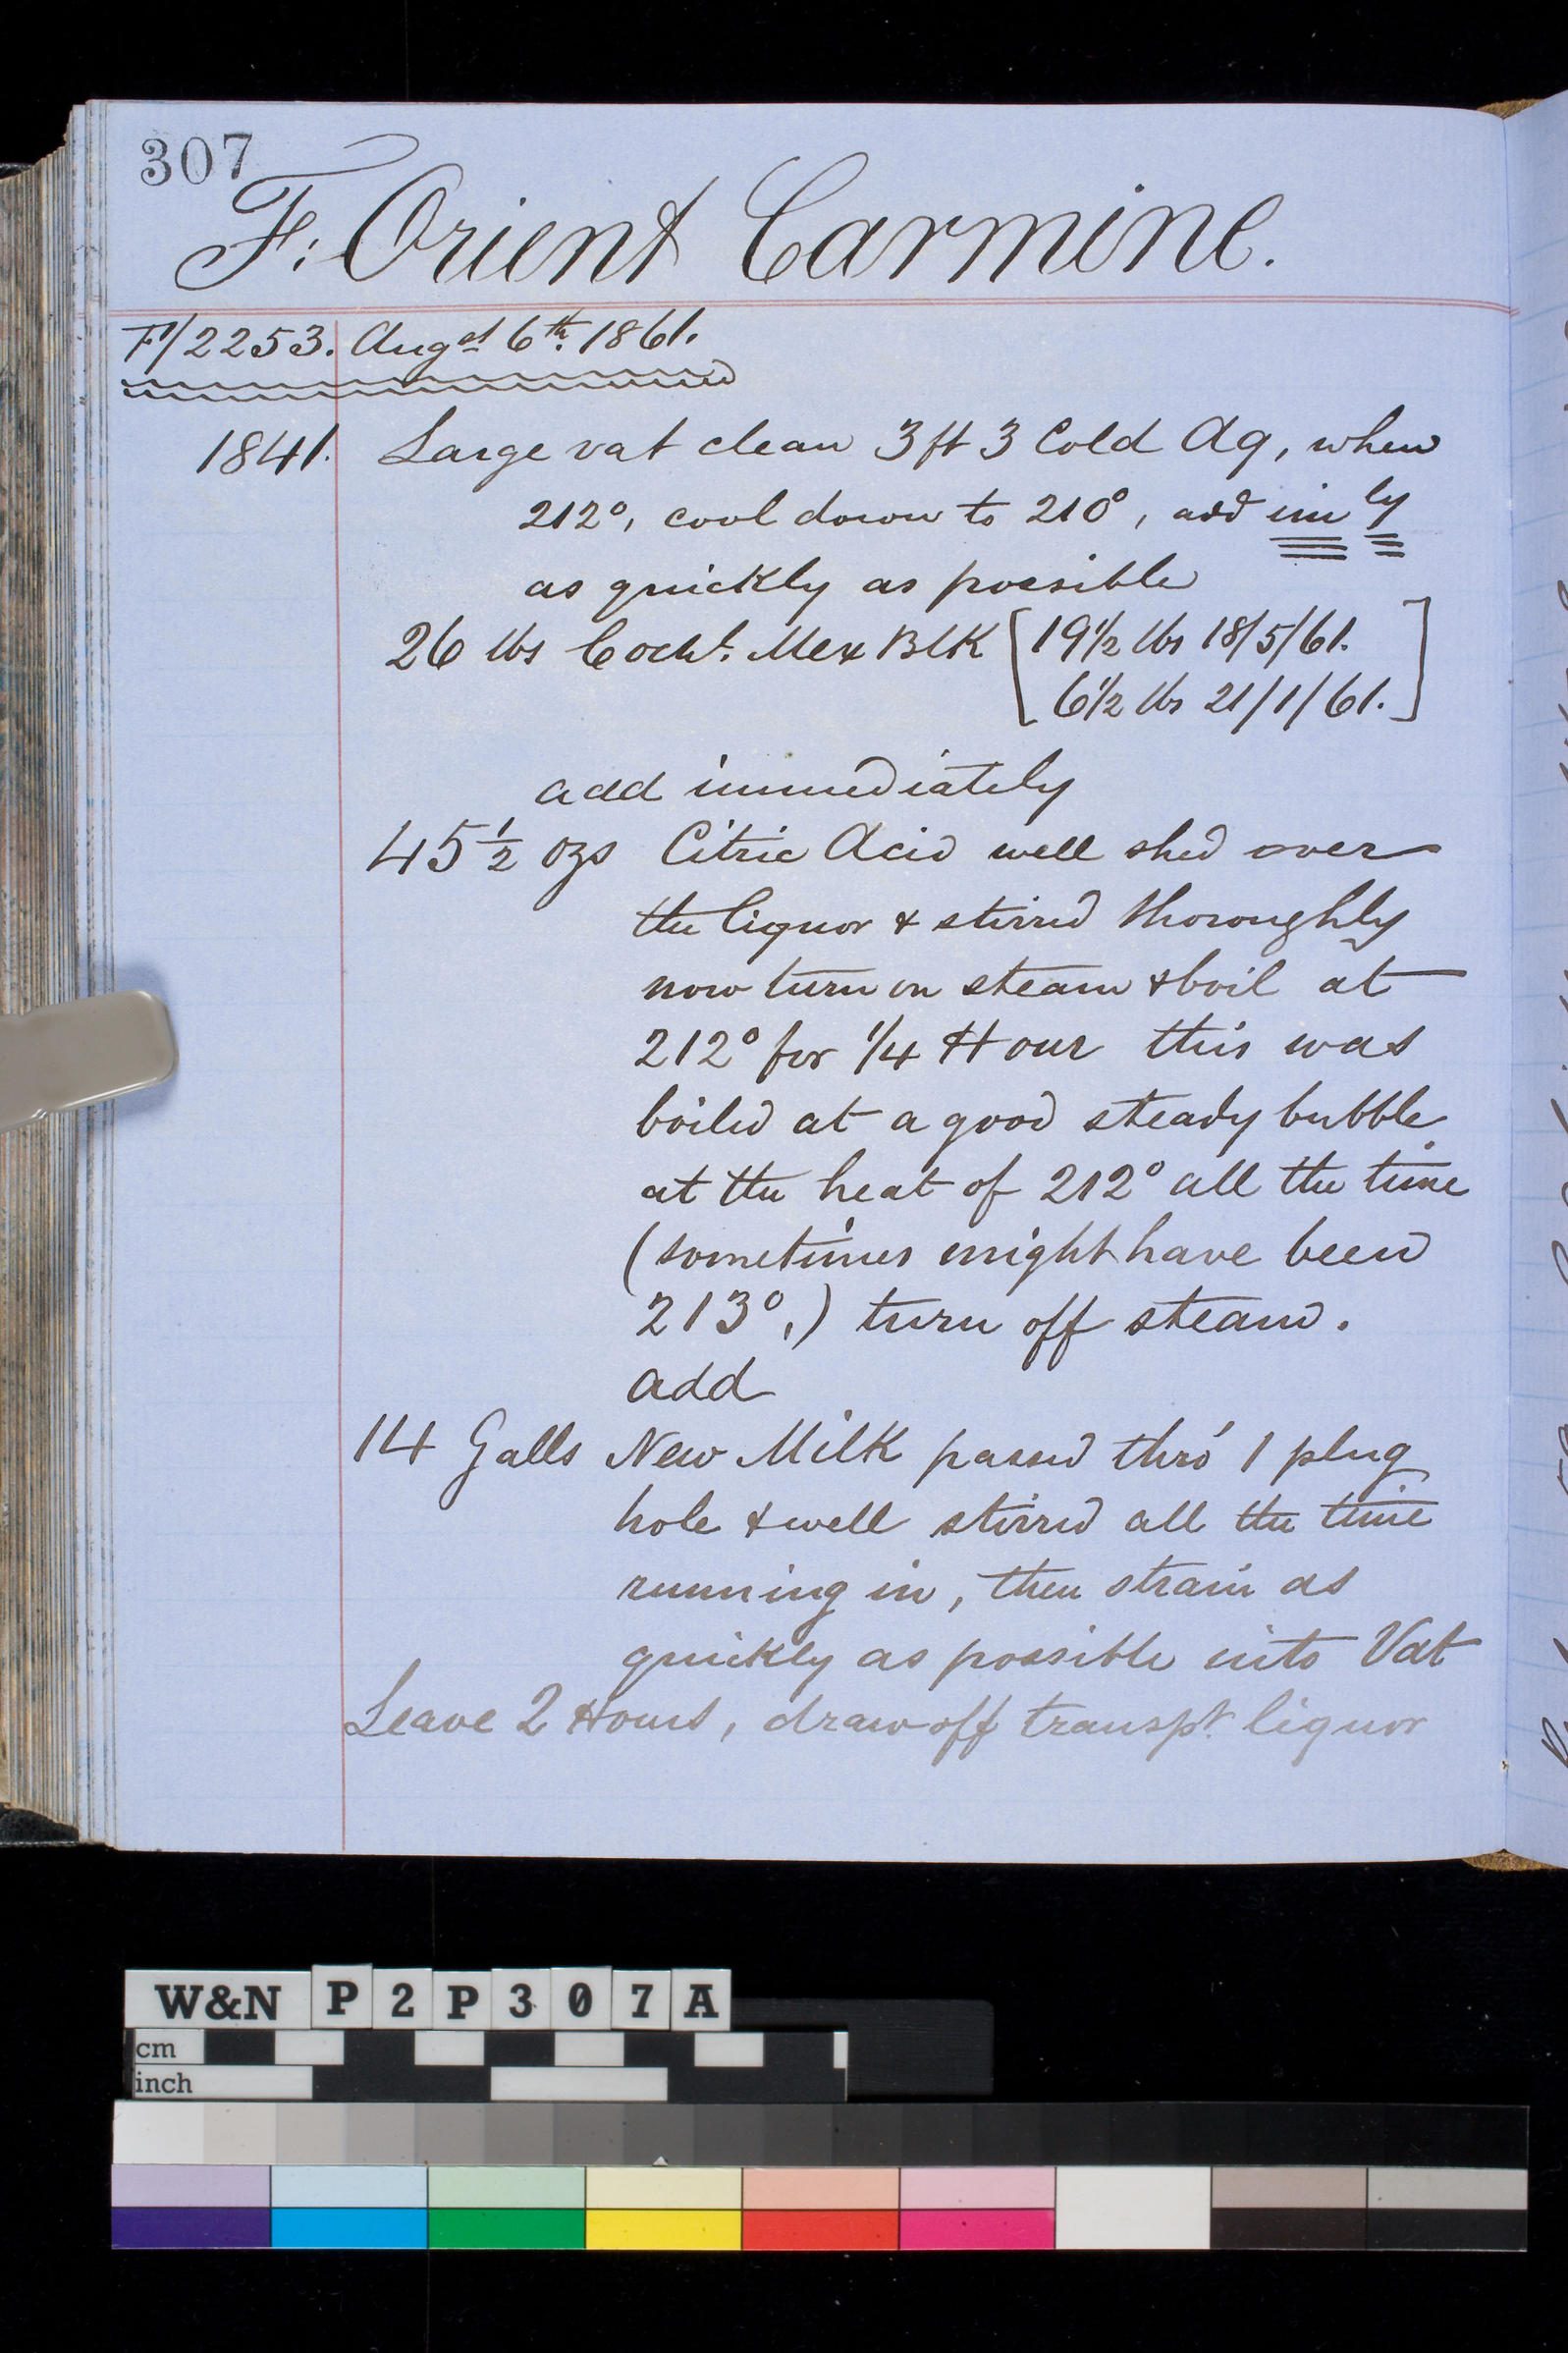 307
F: Orient Carmine.
F/2253. Augst 6th. 1861.
1841. Large vat clean 3 ft 3 Cold Aq, when
212°, cool down to 210°, add imly
as quickly as possible
26 lbs Cochl. Mex Blk [19½ lbs 18/5/61.
6½ lbs 21/1/61.]
add immediately
45½ ozs Citric Acid well shed over
the liquor & stirred thoroughly
now turn on steam & boil at
212° for ¼ Hour this was
boiled at a good steady bubble
at the heat of 212° all the time
(sometimes might have been
213°,) turn off steam.
add
14 Galls New Milk passed thro' 1 plug
hole & well stirred all the time
running in, then strain as
quickly as possible into Vat
Leave 2 Hours, draw off transpt. liquor
W&N P2P307A
cm
inch